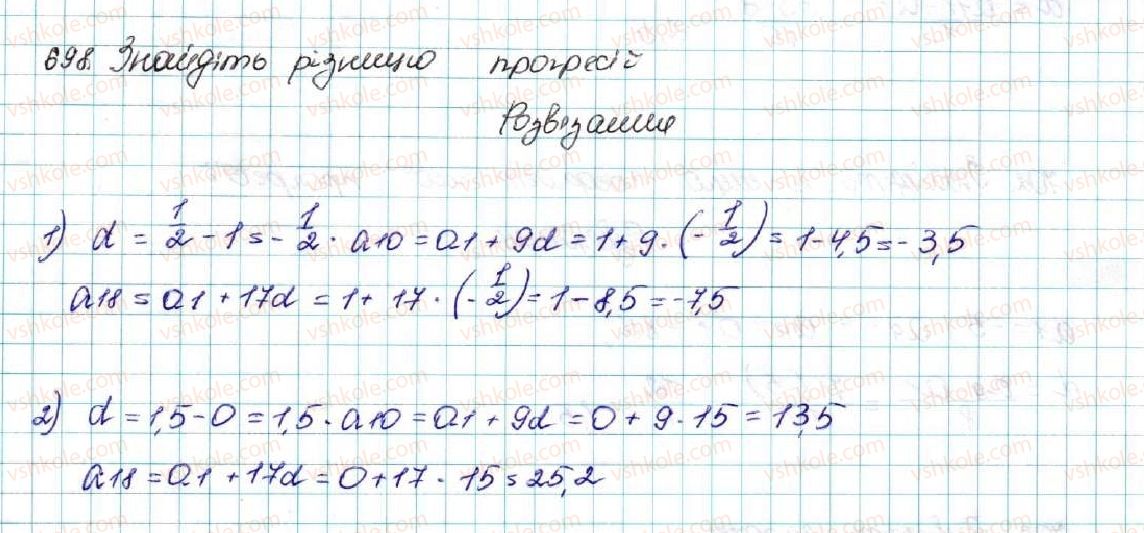 698. Знайдіть різницю прогресій
Розв'язання
1) d = 1/2 - 1 = - 1/2 · a10 = a1 + 9d = 1 + 9 · (- 1/2) = 1 - 4,5 = - 3,5
a18 = a1 + 17d = 1 + 17 · (- 1/2) = 1 - 8,5 = -7,5
2) d = 1,5 - 0 = 1,5 · a10 = a1 + 9d = 0 + 9 · 15 = 13,5
a18 = a1 + 17d = 0 + 17 · 15 = 25,2